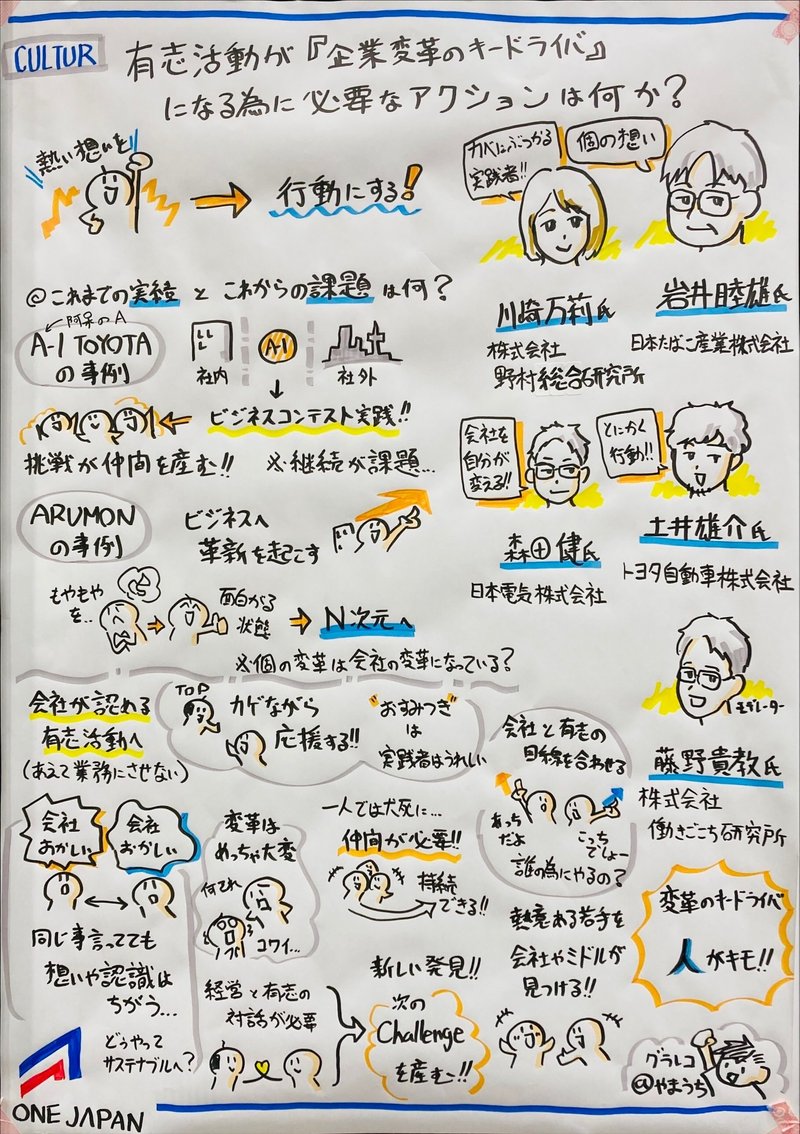 CULTUR
有志活動が『企業変革のキードライバ』
になる為に必要なアクションは何か?
熱い想いを
行動にする!
カベにぶつかる
実践者!!
個の想い
川崎万莉氏
株式会社
野村総合研究所
岩井睦雄氏
日本たばこ産業株式会社
@これまでの実績とこれからの課題は何?
阿呆のA
A-1 TOYOTA
の事例
社内
A-1
社外
ビジネスコンテスト実践!!
挑戦が仲間を産む!! ※継続が課題…
会社を
自分が
変える!!
とにかく
行動!!
森田健氏
日本電気株式会社
土井雄介氏
トヨタ自動車株式会社
ARUMON
の事例
ビジネスへ
革新を起こす
もやもや
を…
面白がる
状態
N次元へ
※個の変革は会社の変革になっている?
モデレーター
藤野貴教氏
株式会社
働きごこち研究所
会社が認める
有志活動へ
(あえて業務にさせない)
TOP
カゲながら
応援する!!
"おすみつき"
は
実践者はうれしい
会社と有志の
目線を合わせる
あっち
だよ
こっち
でしょー
誰の為にやるの?
会社
おかしい
会社
おかしい
同じ事言ってても
想いや認識は
ちがう…
どうやって
サステナブルへ?
変革は
めっちゃ大変
何それ
コワイ…
経営と有志の
対話が必要
一人では犬死に…
仲間が必要!!
持続
できる!!
新しい発見!!
次の
Challenge
を産む!!
熱意ある若手を
会社やミドルが
見つける!!
変革のキードライバ
人がキモ!!
グラレコ
@やまうち
ONE JAPAN